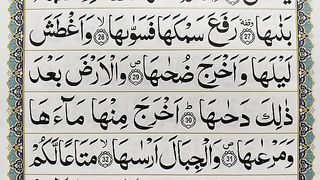 بَنٰىهَا ۝٢٧ رَفَعَ سَمْكَهَا فَسَوّٰىهَا ۝٢٨ وَاَغْطَشَ
لَيْلَهَا وَاَخْرَجَ ضُحٰىهَا ۝٢٩ وَالْاَرْضَ بَعْدَ
ذٰلِكَ دَحٰىهَا ۝٣٠ اَخْرَجَ مِنْهَا مَآءَهَا
وَمَرْعٰىهَا ۝٣١ وَالْجِبَالَ اَرْسٰىهَا ۝٣٢ مَتَاعًا لَّكُمْ